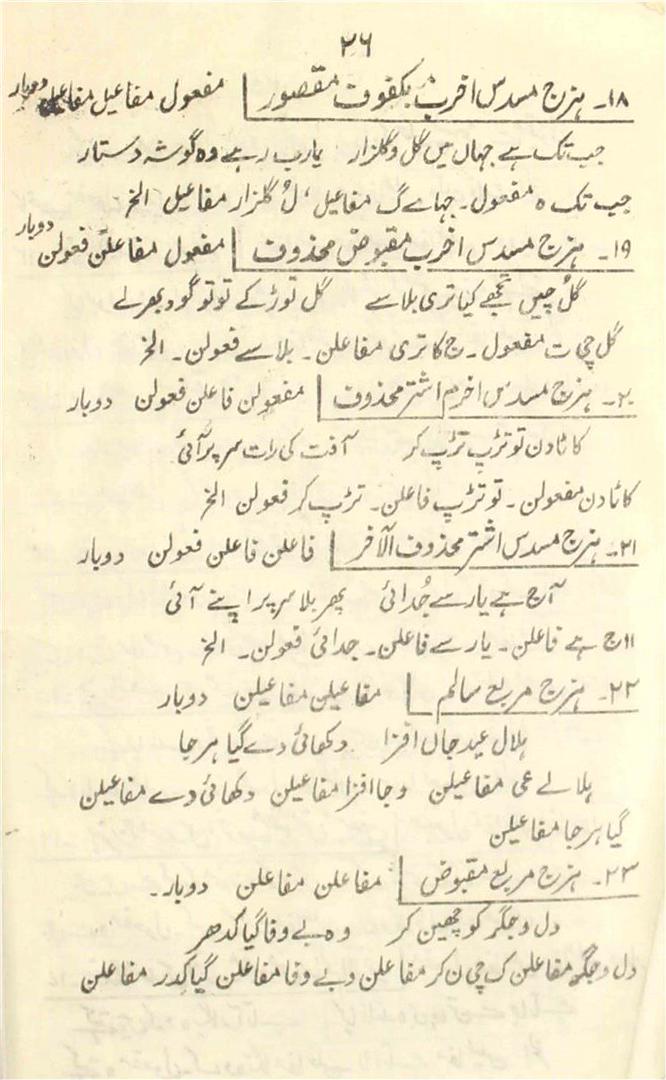 ۲۶
۱۸۔ ہزج مسدس اخرب مکفوف مقصور مفعول مفاعیل مفاعیل دوبار
جب تک ہے جہاں میں گل و گلزار یارب رہے وہ گوشہ دستار
جب تک ہ مفعول۔ جہا ے گ مفاعیل، لُ گلزار مفاعیل الخ
۱۹۔ ہزج مسدس اخرب مقبوض محذوف مفعول مفاعلن فعولن دوبار
گل چیں تجھے کیا تری بلا سے گل توڑ کے تو تو گود بھر لے
گل چی ت مفعول۔ ج کا تری مفاعلن۔ بلا سے فعولن۔ الخ
۲۰۔ ہزج مسدس اخرم اشتر محذوف مفعولن فاعلن فعولن دوبار
کاٹا دن تو تڑپ تڑپ کر آفت کی رات سر پر آئی
کاٹا دن مفعولن۔ تو تڑپ فاعلن۔ تڑپ کر فعولن الخ
۲۱۔ ہزج مسدس اشتر محذوف الآخر فاعلن فاعلن فعولن دوبار
آج ہے یار سے جُدائی پھر بلا سر پر اپنے آئی
ااج ہے فاعلن۔ یار سے فاعلن۔ جدائی فعولن۔ الخ
۲۲۔ ہزج مربع سالم مفاعیلن مفاعیلن دوبار
ہلال عید جاں افزا دکھائی دے گیا ہر جا
ہلالے عی مفاعیلن دجا افزا مفاعیلن دکھائی دے مفاعیلن
گیا ہر جا مفاعیلن
۲۳۔ ہزج مربع مقبوض مفاعلن مفاعلن دوبار۔
دل و جگر کو چھین کر وہ بے وفا گیا کدھر
دل و جگر مفاعلن ک چی ن کر مفاعلن و بے وفا مفاعلن گیا کدر مفاعلن